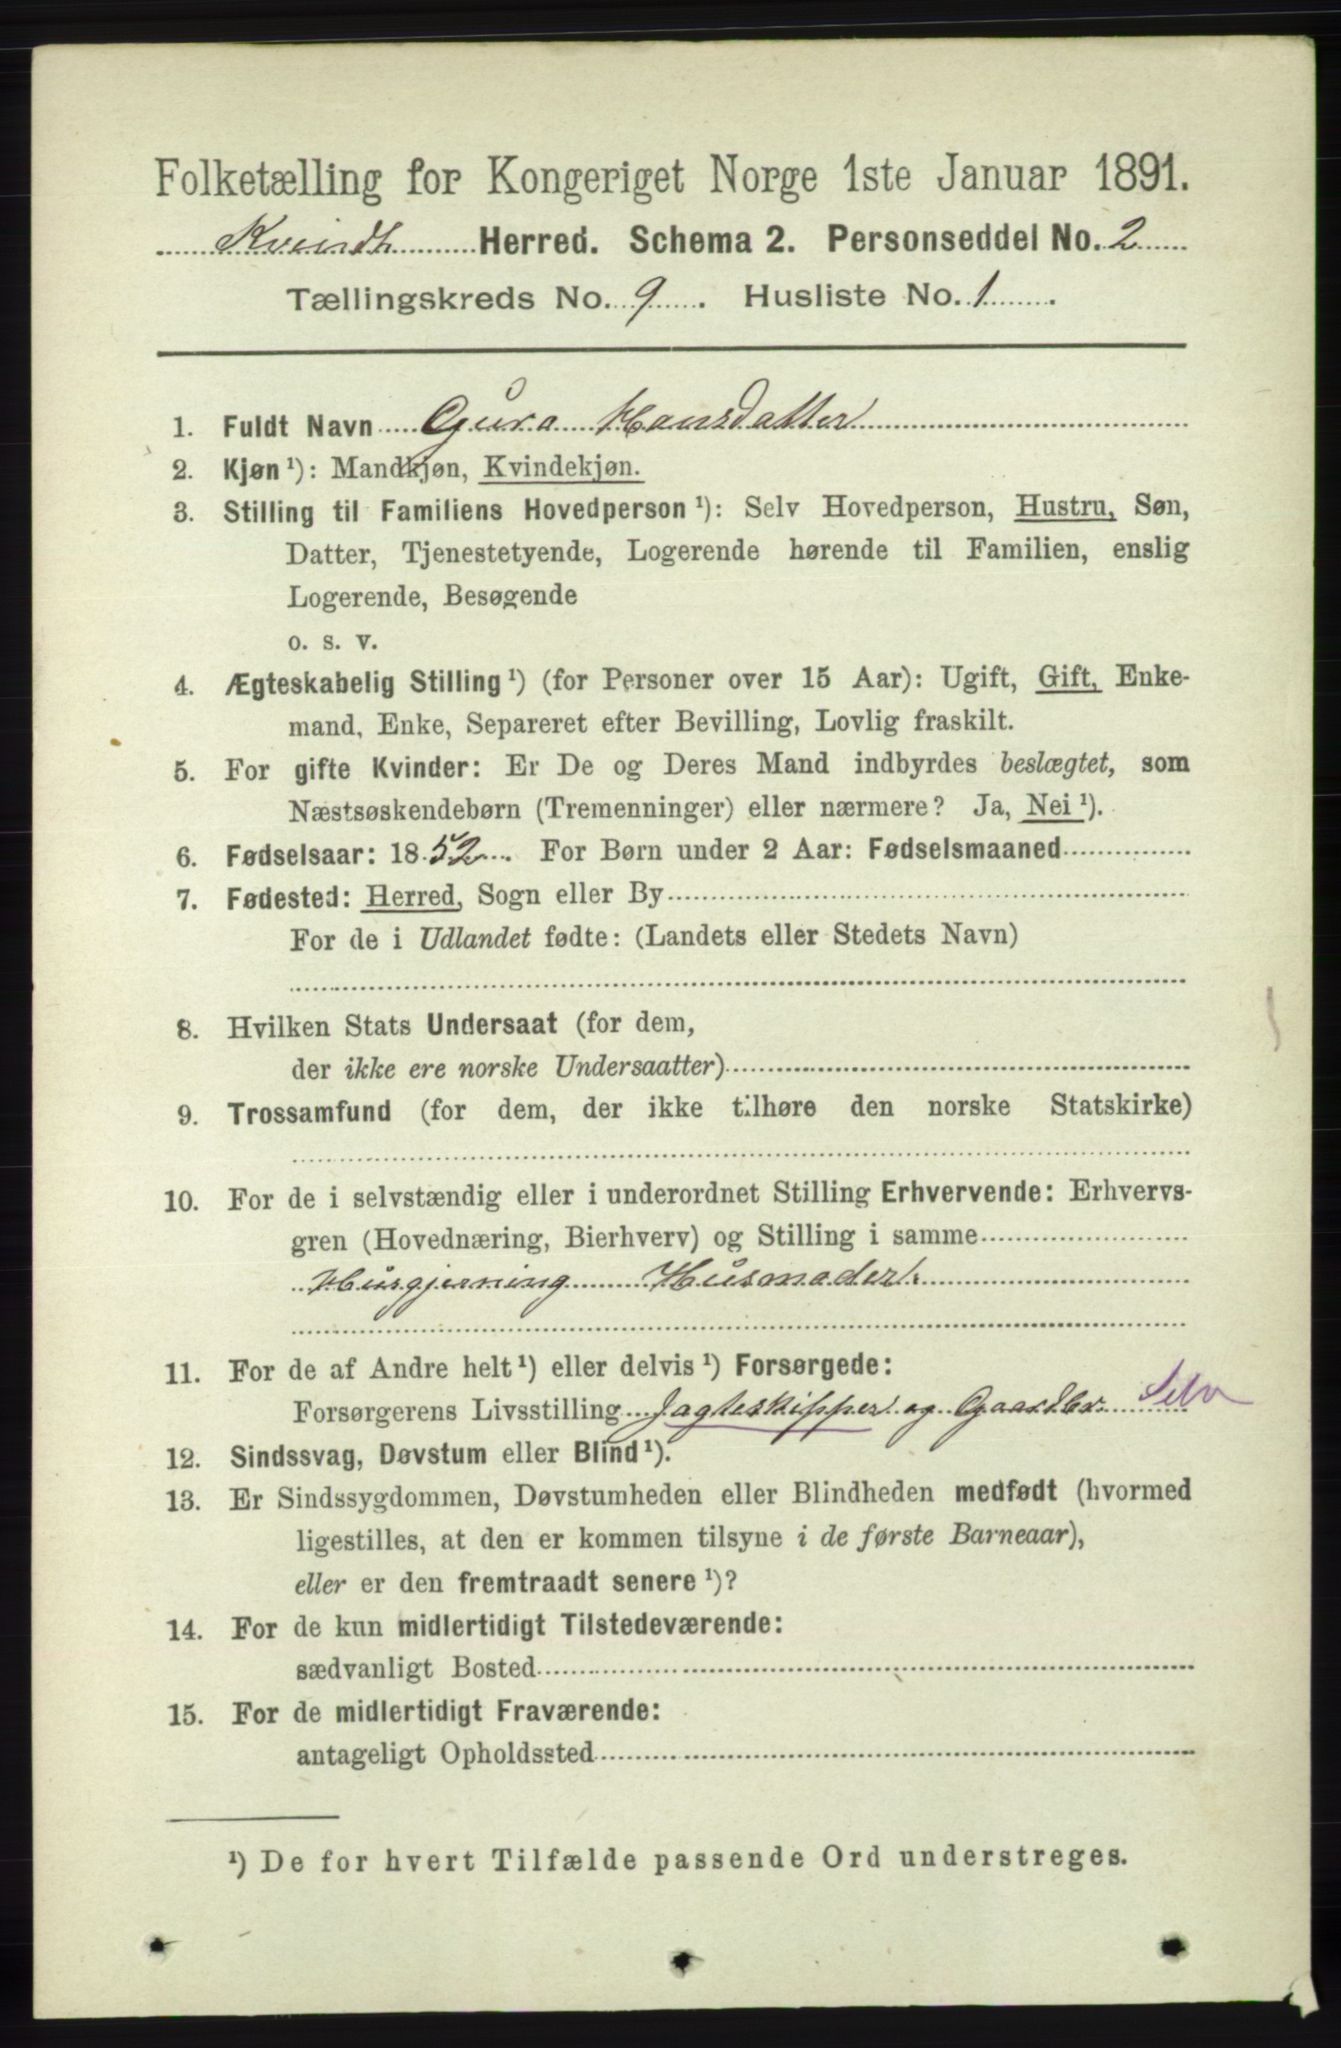 Folketælling for Kongeriget Norge 1ste Januar 1891.
Kvindh Herred. Schema 2. Personseddel No. 2
Tællingskreds No. 9. Husliste No. 1.
1. Fuldt Navn Gura Hansdatter
2. Kjøn ¹): Mandkjøn, Kvindekjøn.
3. Stilling til Familiens Hovedperson ¹): Selv Hovedperson, Hustru, Søn,
Datter, Tjenestetyende, Logerende hørende til Familien, enslig
Logerende, Besøgende
o. s. v.
4. Ægteskabelig Stilling ¹) (for Personer over 15 Aar): Ugift, Gift, Enke-
mand, Enke, Separeret efter Bevilling, Lovlig fraskilt.
5. For gifte Kvinder: Er De og Deres Mand indbyrdes beslægtet, som
Næstsøskendebørn (Tremenninger) eller nærmere? Ja, Nei ¹).
6. Fødselsaar: 1852. For Børn under 2 Aar: Fødselsmaaned
7. Fødested: Herred, Sogn eller By
For de i Udlandet fødte: (Landets eller Stedets Navn)
8. Hvilken Stats Undersaat (for dem,
der ikke ere norske Undersaatter)
9. Trossamfund (for dem, der ikke tilhøre den norske Statskirke)
10. For de i selvstændig eller i underordnet Stilling Erhvervende: Erhvervs-
gren (Hovednæring, Bierhverv) og Stilling i samme
Husgjerning Husmoder
11. For de af Andre helt ¹) eller delvis ¹) Forsørgede:
Forsørgerens Livsstilling Jagteskipper og Gaardbr. Selv
12. Sindssvag, Døvstum eller Blind ¹).
13. Er Sindssygdommen, Døvstumheden eller Blindheden medfødt (hvormed
ligestilles, at den er kommen tilsyne i de første Barneaar),
eller er den fremtraadt senere ¹)?
14. For de kun midlertidigt Tilstedeværende:
sædvanligt Bosted
15. For de midlertidigt Fraværende:
antageligt Opholdssted
¹) De for hvert Tilfælde passende Ord understreges.